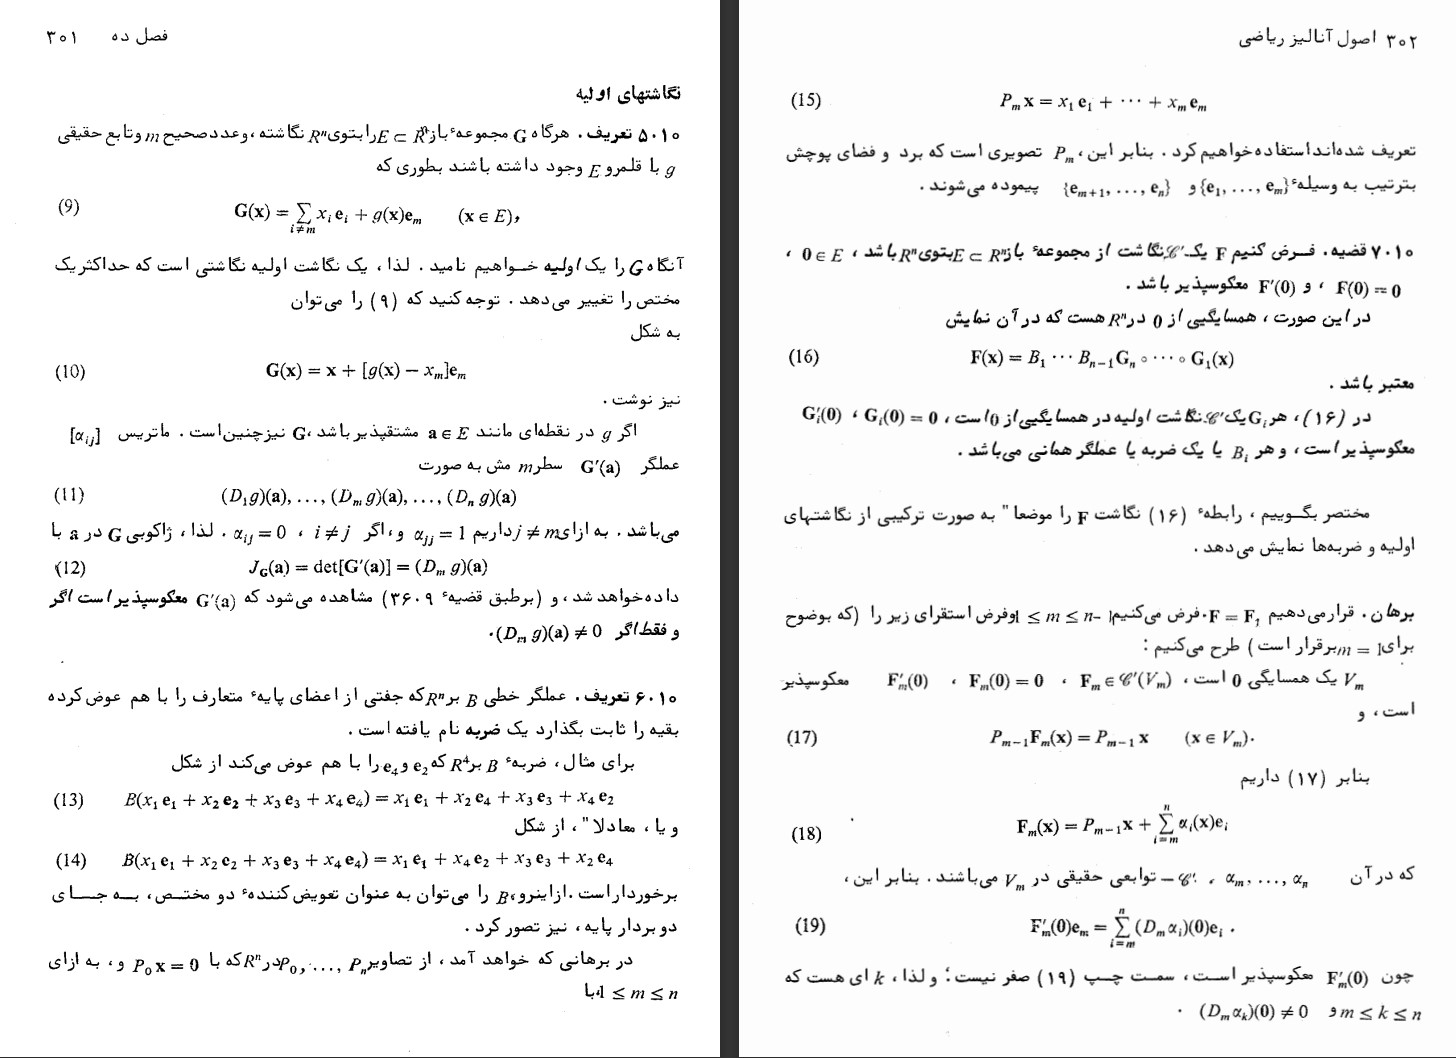 فصل ده ۳۰۱
نگاشتهای اولیه
۵.۱۰ تعریف. هرگاه G مجموعهٔ باز E ⊂ Rⁿ را بتوی Rⁿ نگاشته، وعددصحیح m وتابع حقیقی
g با قلمرو E وجود داشته باشند بطوری که
(9) G(x) = ∑_{i≠m} x_i e_i + g(x)e_m (x ∈ E),
آنگاه G را یک اولیه خواهیم نامید. لذا، یک نگاشت اولیه نگاشتی است که حداکثریک
مختص را تغییر می‌دهد. توجه کنید که (۹) را می‌توان
به شکل
(10) G(x) = x + [g(x) − x_m]e_m
نیز نوشت.
اگر g در نقطه‌ای مانند a ∈ E مشتقپذیر باشد، G نیزچنین‌است. ماتریس [α_ij]
عملگر G′(a) سطر m مش به صورت
(11) (D₁g)(a), ..., (D_m g)(a), ..., (D_n g)(a)
می‌باشد. به ازای j ≠ m داریم α_jj = 1 و، اگر i ≠ j، α_ij = 0. لذا، ژاکوبی G در a با
(12) J_G(a) = det[G′(a)] = (D_m g)(a)
داده‌خواهد شد، و (برطبق قضیهٔ ۳۶.۹) مشاهده می‌شود که G′(a) معکوسپذیر است اگر
و فقط‌اگر (D_m g)(a) ≠ 0.
۶.۱۰ تعریف. عملگر خطی B بر Rⁿ که جفتی از اعضای پایهٔ متعارف را با هم عوض‌کرده
بقیه را ثابت بگذارد یک ضربه نام یافته است.
برای مثال، ضربهٔ B بر R⁴ که e₂ و e₄ را با هم عوض می‌کند از شکل
(13) B(x₁e₁ + x₂e₂ + x₃e₃ + x₄e₄) = x₁e₁ + x₂e₄ + x₃e₃ + x₄e₂
و یا، معادلا"، از شکل
(14) B(x₁e₁ + x₂e₂ + x₃e₃ + x₄e₄) = x₁e₁ + x₄e₂ + x₃e₃ + x₂e₄
برخورداراست. ازاینرو، B را می‌توان به عنوان تعویض‌کنندهٔ دو مختص، به جای
دو بردار پایه، نیز تصور کرد.
در برهانی که خواهد آمد، از تصاویر P₀, ..., P_n در Rⁿ که با P₀x = 0 و، به ازای
1 ≤ m ≤ n، با
۳۰۲ اصول آنالیز ریاضی
(15) P_m x = x₁e₁ + ··· + x_m e_m
تعریف شده‌اند استفاده‌خواهیم کرد. بنابر این، P_m تصویری است که برد و فضای پوچش
بترتیب به وسیلهٔ {e₁, ..., e_m} و {e_{m+1}, ..., e_n} پیموده می‌شوند.
۷.۱۰ قضیه. فرض کنیم F یک 𝒞′ نگاشت از مجموعهٔ باز E ⊂ Rⁿ بتوی Rⁿ باشد، 0 ∈ E،
F(0) = 0، و F′(0) معکوسپذیر باشد.
در این صورت، همسایگیی از 0 در Rⁿ هست که در آن نمایش
(16) F(x) = B₁ ··· B_{n−1}G_n ∘ ··· ∘ G₁(x)
معتبر باشد.
در (۱۶)، هر G_i یک 𝒞′ نگاشت اولیه در همسایگیی از 0 است، G_i(0) = 0، G′_i(0)
معکوسپذیر است، و هر B_i یا یک ضربه یا عملگر همانی می‌باشد.
مختصر بگوییم، رابطهٔ (۱۶) نگاشت F را موضعا" به صورت ترکیبی از نگاشتهای
اولیه و ضربه‌ها نمایش می‌دهد.
برهان. قرار می‌دهیم F = F₁. فرض می‌کنیم 1 ≤ m ≤ n−1 وفرض استقرای زیر را (که بوضوح
برای m = 1 برقرار است) طرح می‌کنیم:
V_m یک همسایگی 0 است، F_m ∈ 𝒞′(V_m)، F_m(0) = 0، F′_m(0) معکوسپذیر
است، و
(17) P_{m−1}F_m(x) = P_{m−1}x (x ∈ V_m).
بنابر (۱۷) داریم
(18) F_m(x) = P_{m−1}x + ∑_{i=m}^{n} α_i(x)e_i
که در آن α_m, ..., α_n، 𝒞′ – توابعی حقیقی در V_m می‌باشند. بنابر این،
(19) F′_m(0)e_m = ∑_{i=m}^{n} (D_m α_i)(0)e_i .
چون F′_m(0) معکوسپذیر است، سمت چپ (۱۹) صفر نیست؛ و لذا، k ای هست که
m ≤ k ≤ n و (D_m α_k)(0) ≠ 0 .